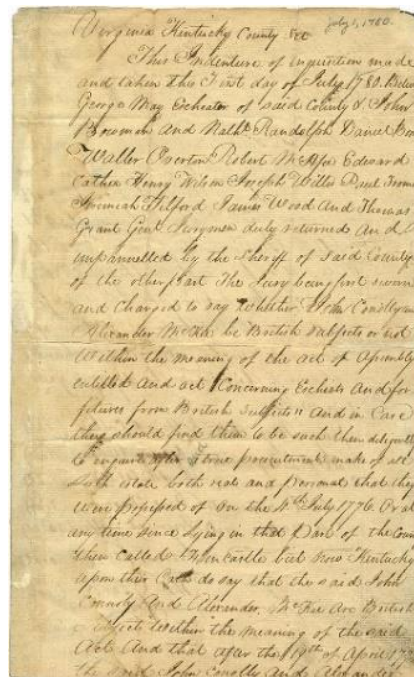 July 1, 1780.
Virginia Kentucky County &c
This Indenture of inquisition made
and taken this First day of July 1780. Betwn
George May Escheator of said County & John
Bowman And Nathl. Randolph Daniel Boo
Waller Overton Robert McAfee Edward
Cather Henry Wilson Joseph Willis Paul Froma
Jeremiah Tilford James Wood And Thomas
Grant Gent. Jurymen duly returned And
impannelled by the Sheriff of said County
of the other part The Jury being first sworn
and Charged to say Whether John Conolly and
Alexander McKee be British Subjects or not
Within the meaning of the act of Assembly
entitled And act Concerning Escheats And for
fietures from British Subjects" And in Case
they should find them to be such then diligentl
to enquire after a true make of all
such estate both real and personal that they
were possessed of on the 4th July 1776. Or at
any time since lying in that Part of the Coun
then called Fincastle but now Kentucky
upon their Oath do say that the said John
Connoly And Alexander McKee Are British
Subjects Within the meaning of the said
Act And that after the 19th of April 177
the said John Conolly and Alexander